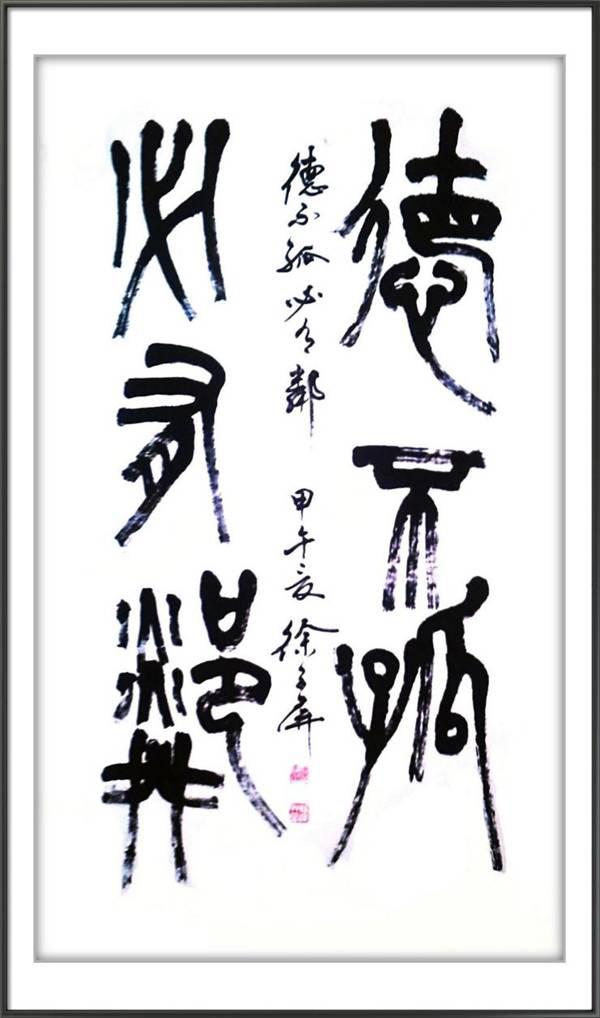 德不孤
必有鄰
德不孤必有鄰
甲午夏徐子屏